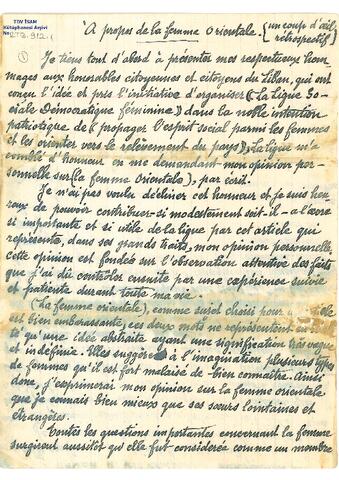 TDV İSAM
Kütüphanesi Arşivi
No
À propos de la femme Orientale. (un coup d'œil
rétrospectif)
①
Je tiens tout d'abord à présenter mes respectueux hom
mages aux honorables citoyennes et citoyens du Liban, qui ont
conçu l'idée et pris l'initiative d'organiser «La Ligue So-
ciale Démocratique féminine» dans la noble intention
patriotique de propager l'esprit social parmi les femmes
et les orienter vers le relèvement du pays. La ligue m'a
comblé d'honneur en me demandant mon opinion per-
sonnelle sur (la femme Orientale), par écrit.
Je n'ai pas voulu décliner cet honneur et je suis heu-
reux de pouvoir contribuer - si modestement soit-il - à l'œuvre
si importante et si utile de la ligue par cet article qui
représente, dans ses grands traits, mon opinion personnelle,
cette opinion est fondée sur l'observation attentive des faits
que j'ai dû contrôler ensuite par une expérience suivie
et patiente durant toute ma vie.
(La femme orientale), comme sujet choisi pour
est bien embarassante, ces deux mots ne représentent en
té qu'une idée abstraite ayant une signification très vague
et indéfinie. Elles suggèrent à l'imagination plusieurs types
de femmes qu'il est fort malaisé de bien connaître. Ainsi
donc, j'exprimerai mon opinion sur la femme orientale
que je connais bien mieux que ses sœurs lointaines et
étrangères.
Toutes les questions importantes concernant la femme
surgirent aussitôt qu'elle fut considérée comme un membre